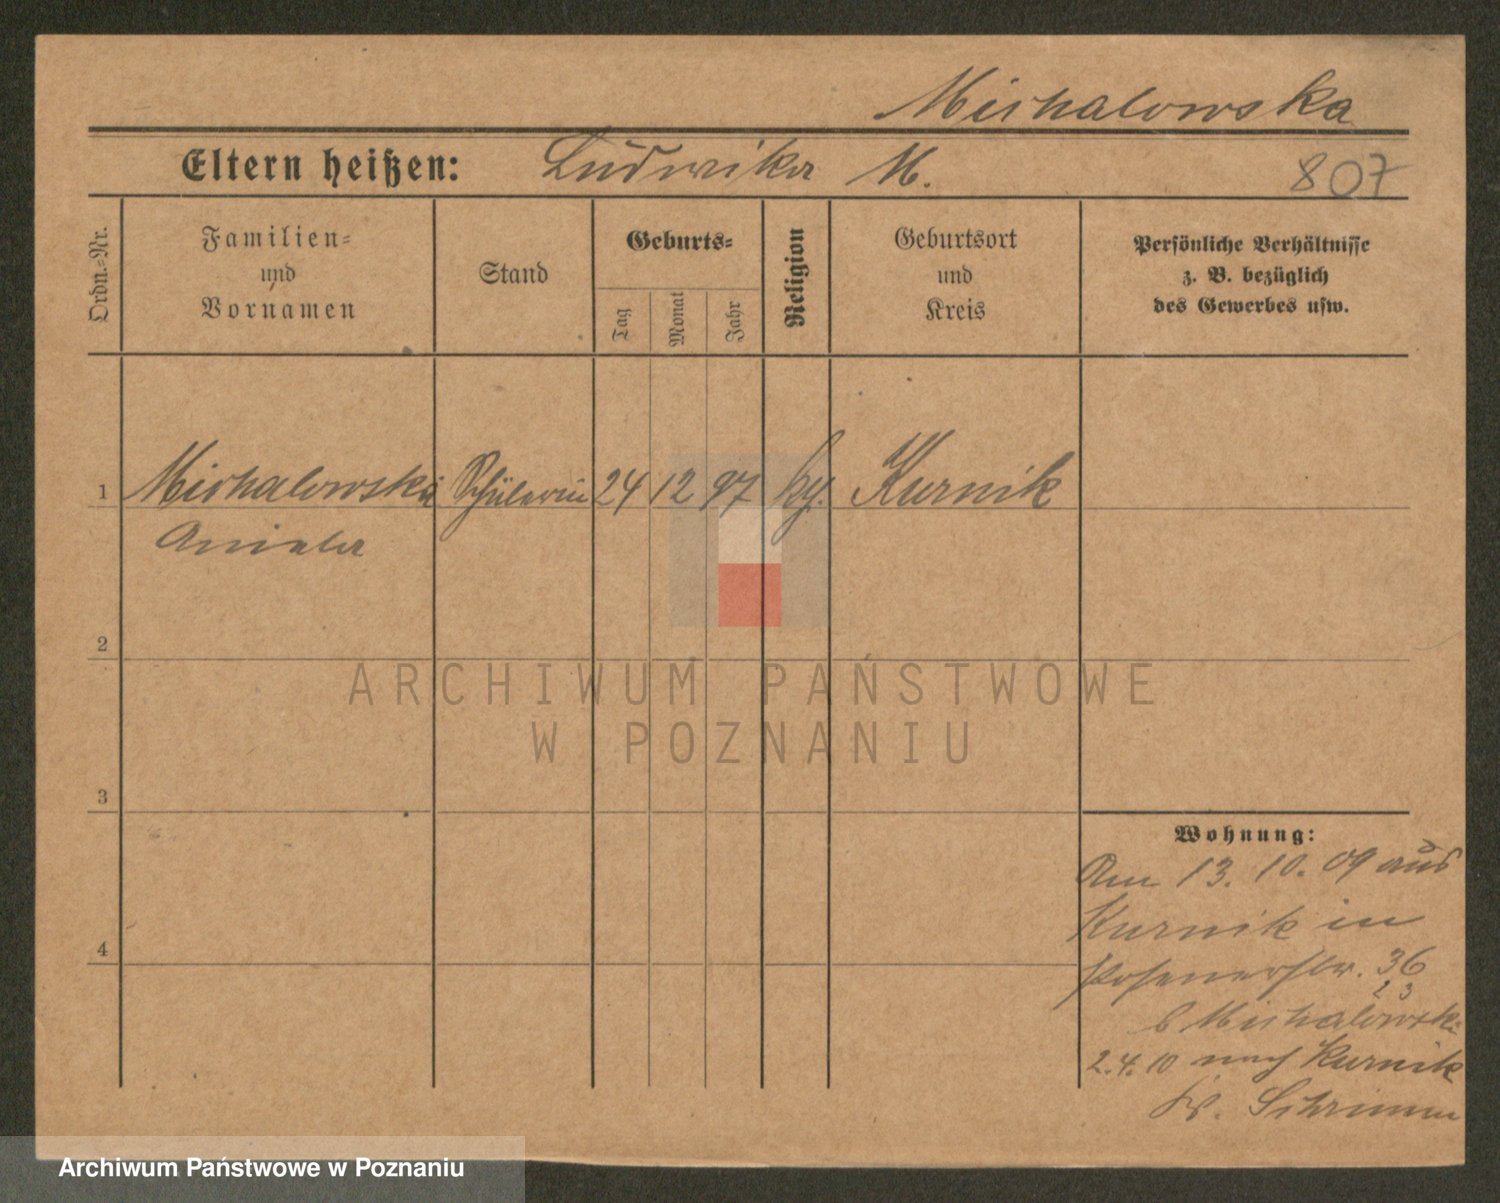 Michalowska
Eltern heißen: Ludwika M.
807
Ordn.=Nr.
Familien=
und
Vornamen
Stand
Geburts=
Tag
Monat
Jahr
Religion
Geburtsort
und
Kreis
Persönliche Verhältnisse
z. B. bezüglich
des Gewerbes usw.
1 Michalowska Schülerin 24 12 97 Kurnik
Aniela
2
3
4
ARCHIWUM PAŃSTWOWE
W POZNANIU
Wohnung:
Am 13. 10. 09 aus
Kurnik in
Posenerstr. 36
23
b Michalowski
2.4.10 nach Kurnik
Kr. Schrimm
Archiwum Państwowe w Poznaniu